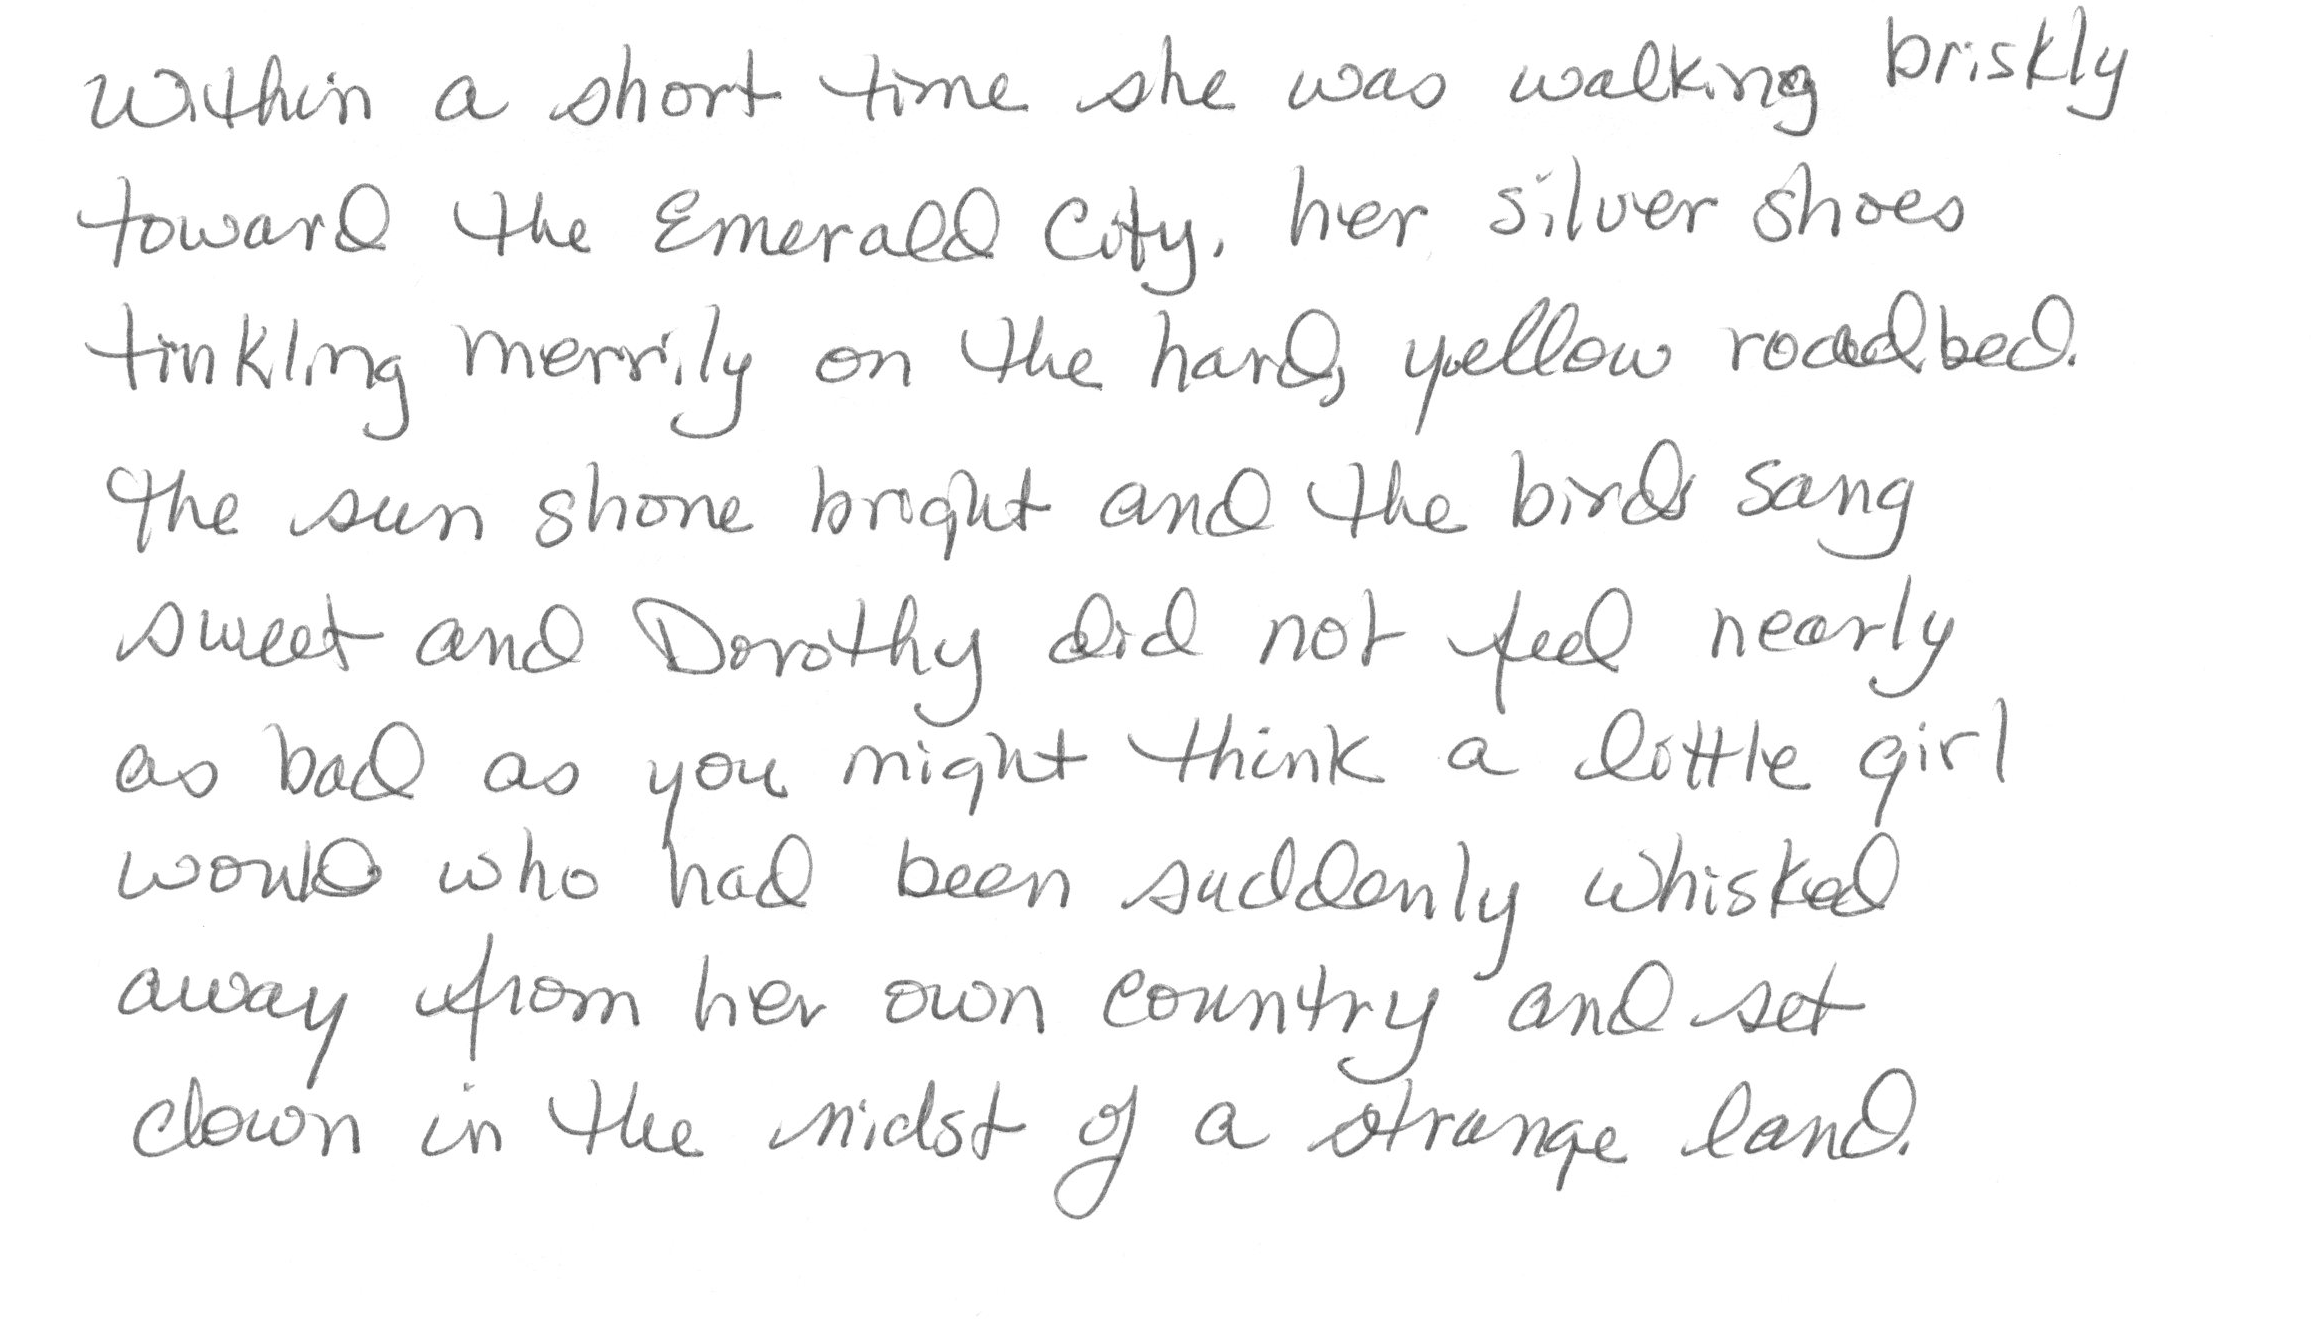 Within a short time she was walking briskly
toward the Emerald City, her silver shoes
tinkling merrily on the hard, yellow roadbed.
The sun shone bright and the birds sang
sweet and Dorothy did not feel nearly
as bad as you might think a little girl
would who had been suddenly whisked
away from her own country and set
down in the midst of a strange land.